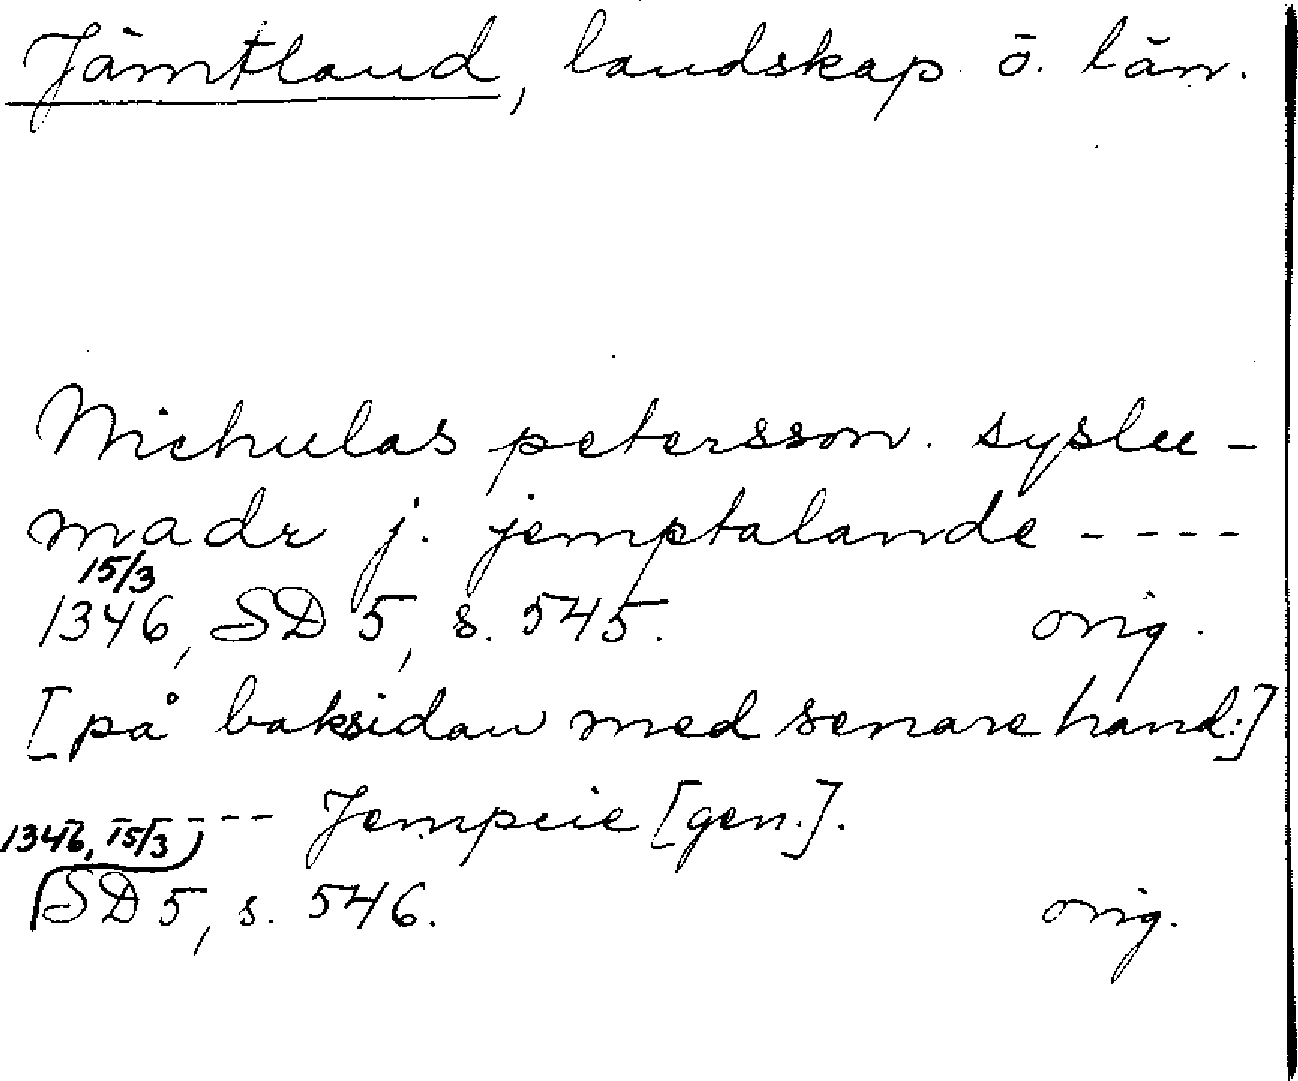 Jämtland, landskap o. län.
Nichulas petersson. syslu-
madr j. jemptalande ----
15/3
1346, SD 5, s. 545. orig.
[på baksidan med senare hand:]
---- Jempcie [gen.].
1346, 15/3
SD 5, s. 546. orig.